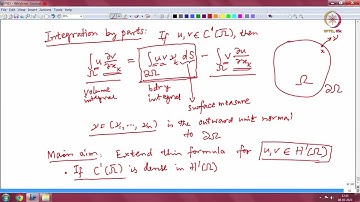 Integration by parts: If u, v ∈ C¹(Ω̄), then
∫_Ω u ∂v/∂x_k = ∫_∂Ω u v ν_k dS − ∫_Ω v ∂u/∂x_k
volume integral
bdry integral
surface measure
ν
Ω
∂Ω
ν = (ν₁, ..., νₙ) is the outward unit normal to ∂Ω
Main aim: Extend this formula for u, v ∈ H¹(Ω)
• If C¹(Ω̄) is dense in H¹(Ω)